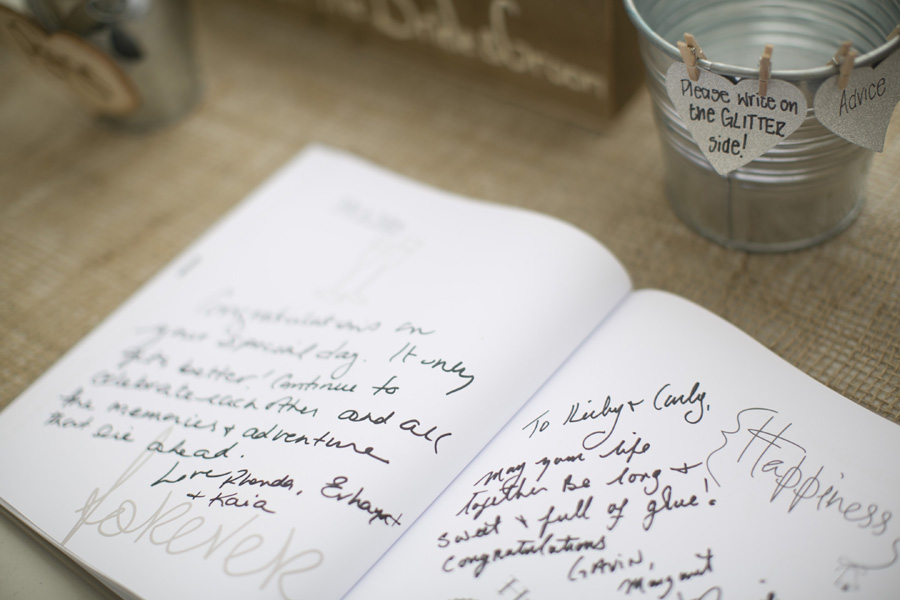 the Bride & Groom
Please write on
the GLITTER
side!
Advice
Congratulations on
your special day. It only
gets better! Continue to
celebrate each other and all
the memories & adventure
that lie ahead.
Love Rhonda,
& Kaia
foRever
To Kirby & Carly,
may your life
together Be long &
sweet & full of glue!
congratulations
GAVIN,
Margaret
{Happiness}